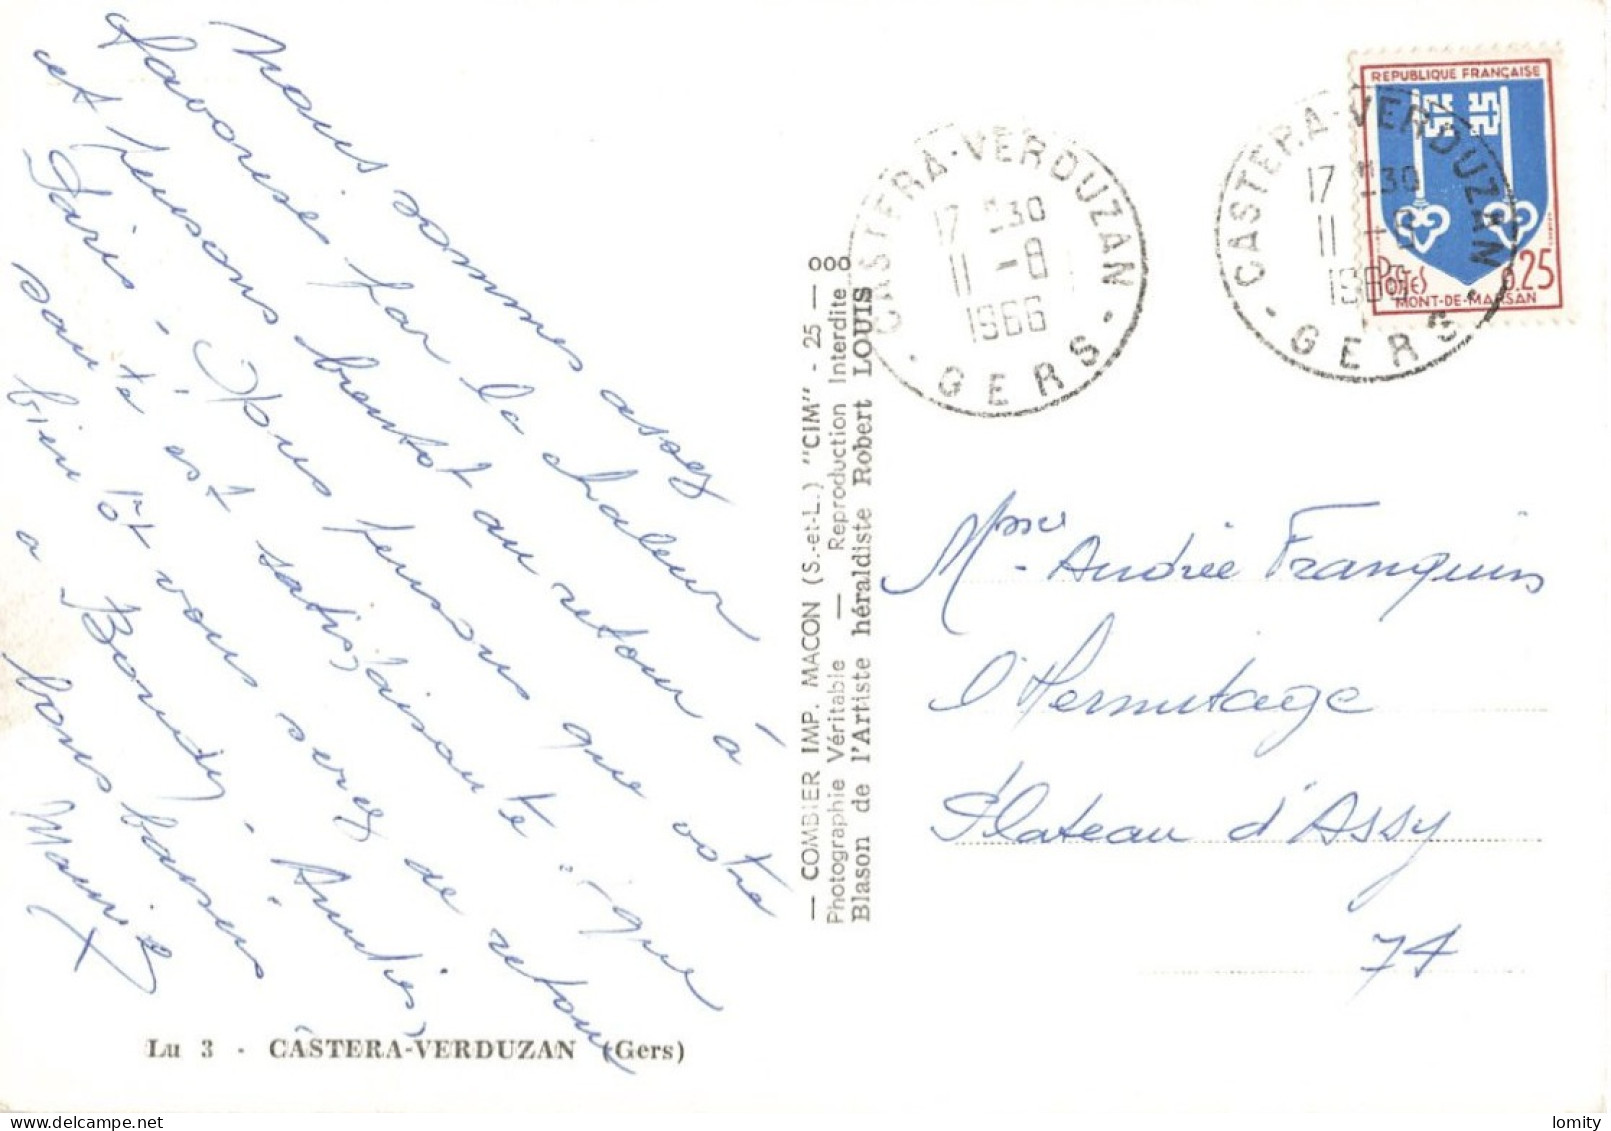 Nous sommes assez
favorisés par la chaleur
et pensons bientôt au retour à
Paris - Nous pensons que votre
santé est satisfaisante, que
bientôt vous serez de retour
à Bondy - Amitiés,
bons baisers
RÉPUBLIQUE FRANÇAISE
POSTES 0,25
MONT-DE-MARSAN
CASTERA-VERDUZAN
17 H30
11 -8
1966
- GERS -
CASTERA-VERDUZAN
17 H30
11 -8
1966
- GERS -
— COMBIER IMP. MACON (S.-et-L.) "CIM" - 25 — ooo
Photographie Véritable — Reproduction Interdite
Blason de l'Artiste héraldiste Robert LOUIS
Mme Andrée Franquin
l'Hermitage
Plateau d'Assy
74
Lu 3 - CASTERA-VERDUZAN (Gers)
lomity